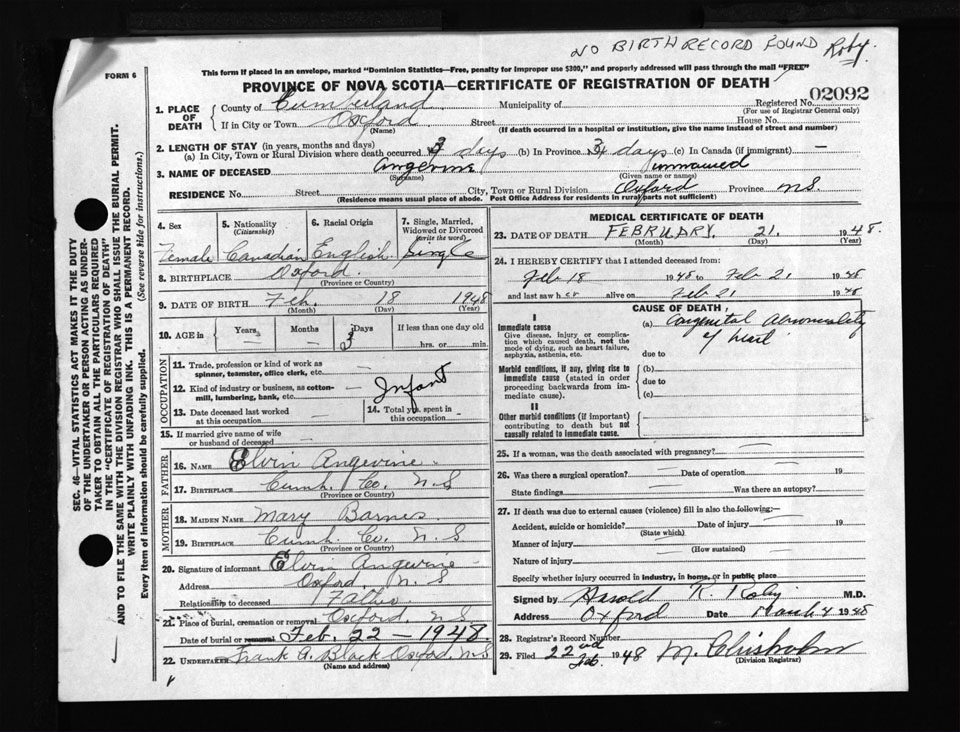 NO BIRTH RECORD FOUND Roby.
FORM 6
This form if placed in an envelope, marked "Dominion Statistics—Free, penalty for improper use $300," and properly addressed will pass through the mail "FREE"
PROVINCE OF NOVA SCOTIA—CERTIFICATE OF REGISTRATION OF DEATH
1. PLACE OF DEATH County of Cumberland Municipality of Registered No. 02092
(For use of Registrar General only)
If in City or Town Oxford Street House No.
(Name) (If death occurred in a hospital or institution, give the name instead of street and number)
2. LENGTH OF STAY (in years, months and days)
(a) In City, Town or Rural Division where death occurred 3 days (b) In Province 3 days (c) In Canada (if immigrant) —
3. NAME OF DECEASED Angevine unnamed
(Surname) (Given name or names)
RESIDENCE No. Street City, Town or Rural Division Oxford Province N.S.
(Residence means usual place of abode. Post Office Address for residents in rural parts not sufficient)
4. Sex Female
5. Nationality (Citizenship) Canadian
6. Racial Origin English
7. Single, Married, Widowed or Divorced (Write the word) Single
8. BIRTHPLACE Oxford.
(Province or Country)
9. DATE OF BIRTH Feb. 18 1948
(Month) (Day) (Year)
10. AGE in Years — Months — Days 3 If less than one day old
hrs. or min.
OCCUPATION
11. Trade, profession or kind of work as spinner, teamster, office clerk, etc. —
12. Kind of industry or business, as cotton-mill, lumbering, bank, etc. — Infant
13. Date deceased last worked at this occupation —
14. Total yrs. spent in this occupation —
15. If married give name of wife or husband of deceased —
FATHER
16. NAME Elvin Angevine
17. BIRTHPLACE Cumb. Co. N.S
(Province or Country)
MOTHER
18. MAIDEN NAME Mary Barnes
19. BIRTHPLACE Cumb. Co. N.S
(Province or Country)
20. Signature of informant Elvin Angevine
Address Oxford, N.S
Relationship to deceased Father
21. Place of burial, cremation or removal Oxford, N.S
Date of burial or removal Feb. 22 — 1948.
22. UNDERTAKER Frank A. Black Oxford, N.S
(Name and address)
MEDICAL CERTIFICATE OF DEATH
23. DATE OF DEATH FEBRUARY. 21. 1948.
(Month) (Day) (Year)
24. I HEREBY CERTIFY that I attended deceased from:
Feb 18 1948 to Feb 21 1948
and last saw her alive on Feb 21 1948
CAUSE OF DEATH
I
Immediate cause
Give disease, injury or complication which caused death, not the mode of dying, such as heart failure, asphyxia, asthenia, etc.
(a) Congenital abnormality of heart
due to
Morbid conditions, if any, giving rise to immediate cause (stated in order proceeding backwards from immediate cause).
(b)
due to
(c)
II
Other morbid conditions (if important) contributing to death but not causally related to immediate cause.
25. If a woman, was the death associated with pregnancy?
26. Was there a surgical operation? Date of operation 19
State findings Was there an autopsy?
27. If death was due to external causes (violence) fill in also the following:—
Accident, suicide or homicide? Date of injury 19
(State which)
Manner of injury
(How sustained)
Nature of injury
Specify whether injury occurred in industry, in home, or in public place
Signed by Harold R. Roby M.D.
Address Oxford Date March 4 1948
28. Registrar's Record Number
29. Filed 22nd Feb. 1948 M. Chisholm
(Division Registrar)
SEC. 46—VITAL STATISTICS ACT MAKES IT THE DUTY
OF THE UNDERTAKER OR PERSON ACTING AS UNDER-
TAKER TO OBTAIN ALL THE PARTICULARS REQUIRED
IN THE "CERTIFICATE OF REGISTRATION OF DEATH"
AND TO FILE THE SAME WITH THE DIVISION REGISTRAR WHO SHALL ISSUE THE BURIAL PERMIT.
WRITE PLAINLY WITH UNFADING INK. THIS IS A PERMANENT RECORD.
Every item of information should be carefully supplied. (See reverse side for instructions.)